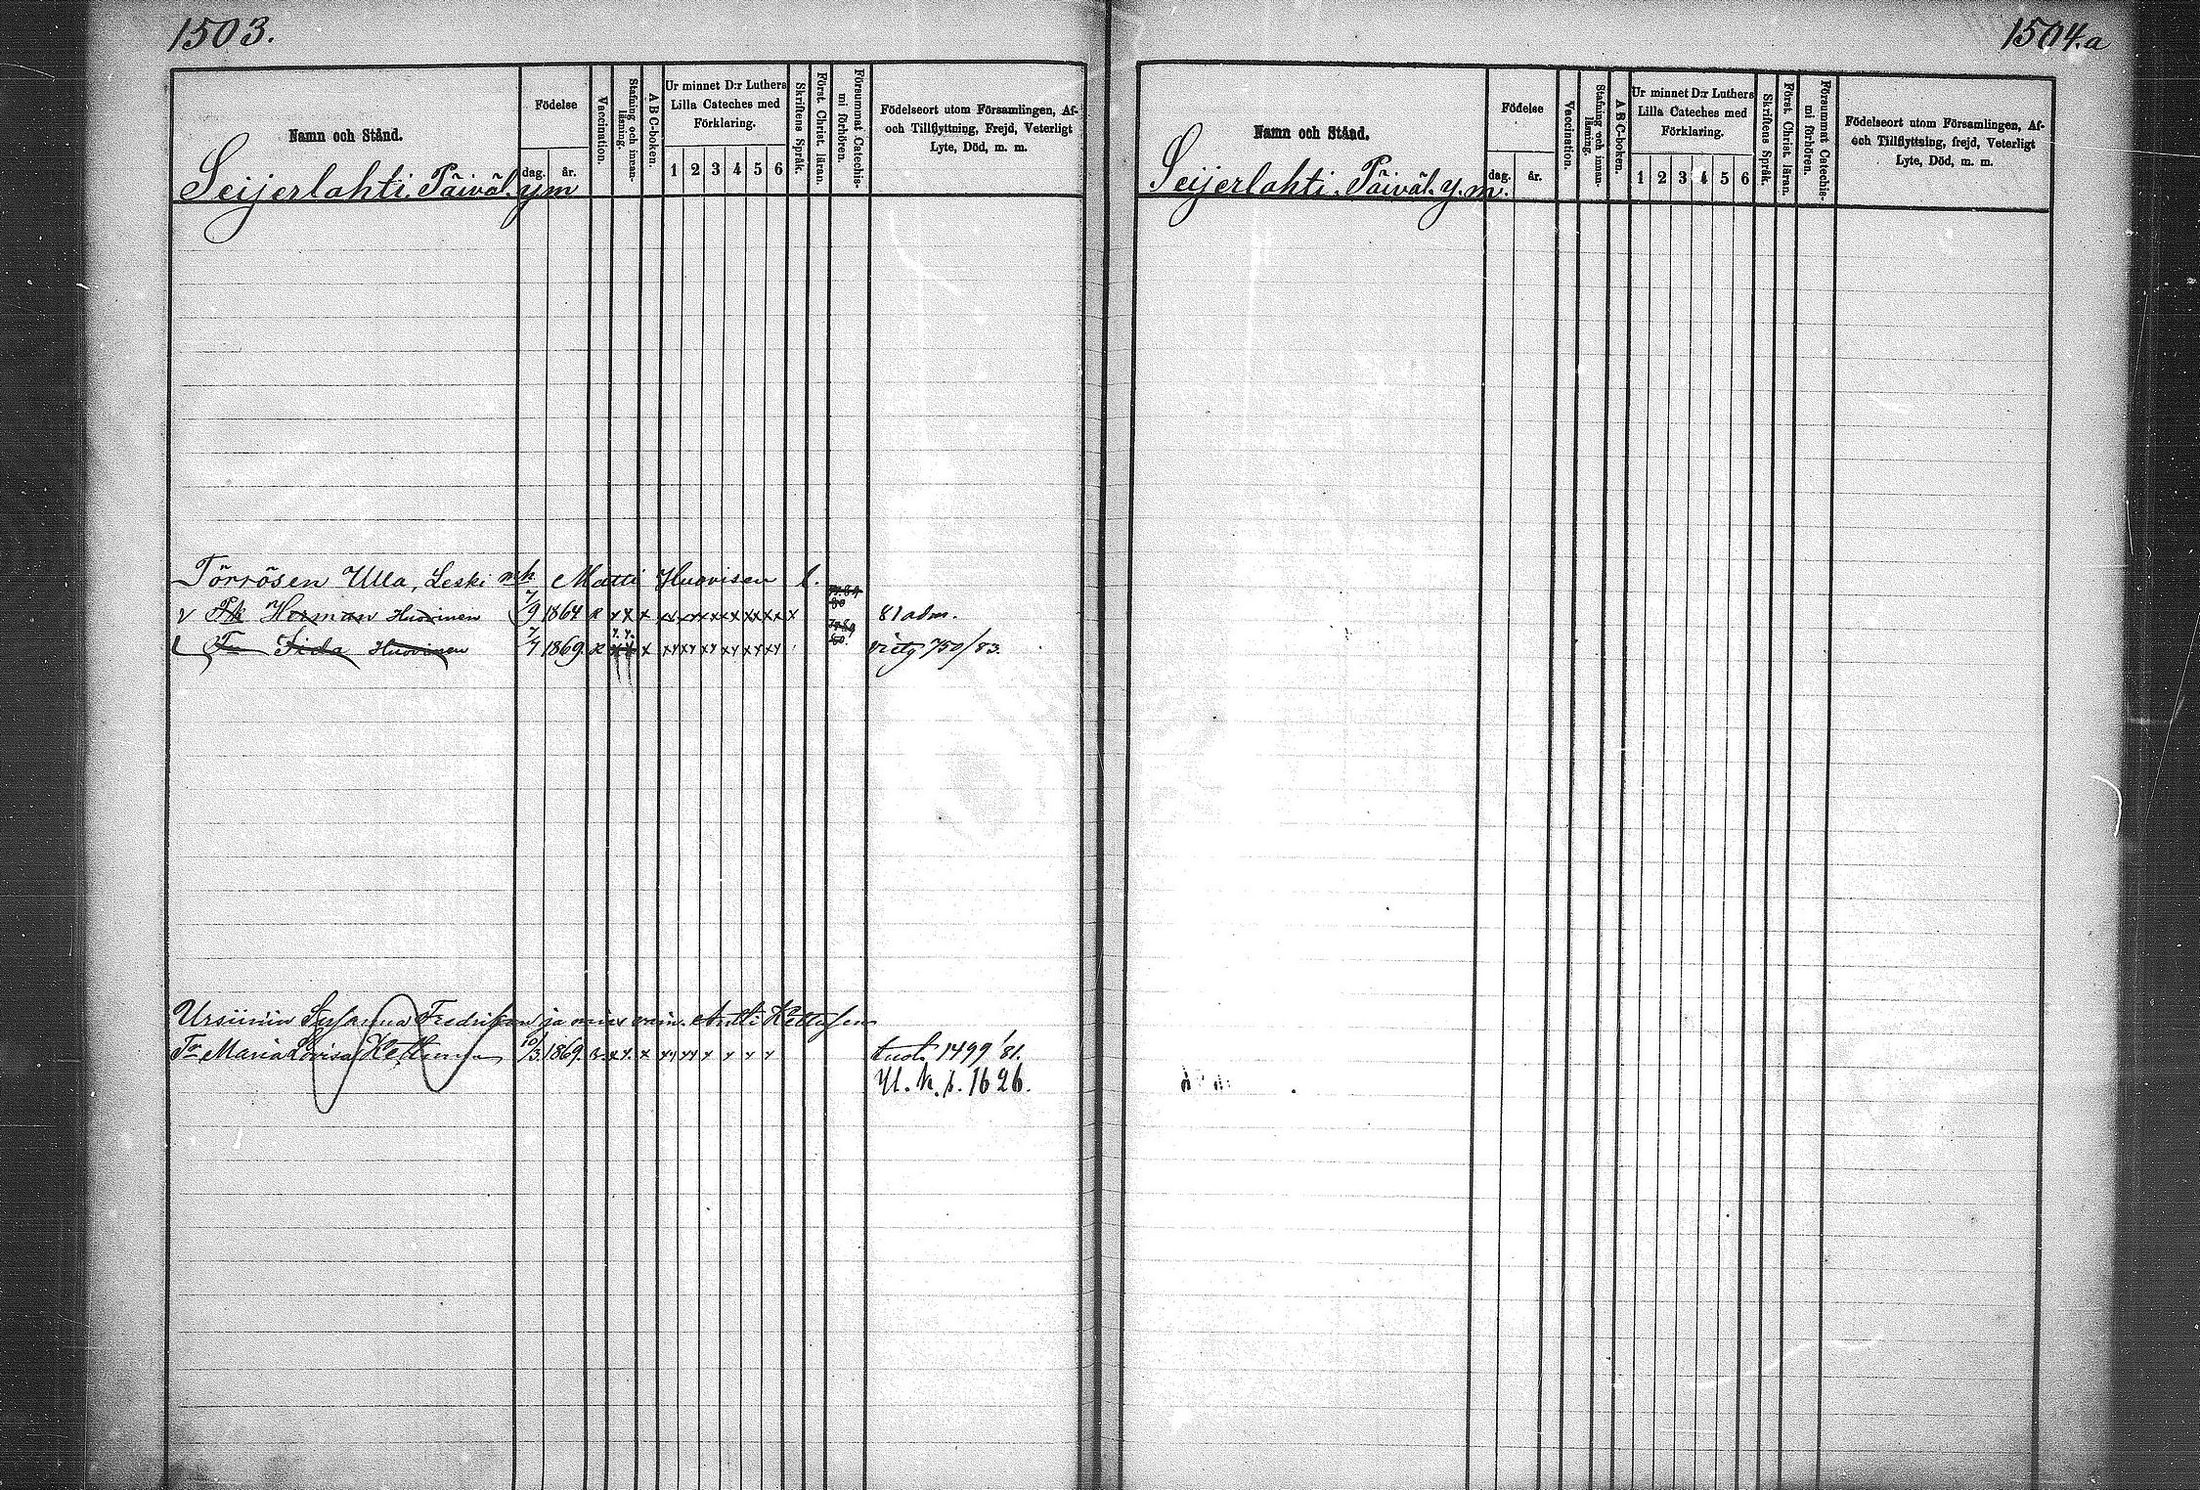 1503.
Namn och Stånd.
Födelse
dag. år.
Vaccination.
Stafning och innan-läsning.
A B C-boken.
Ur minnet D:r Luthers
Lilla Cateches med
Förklaring.
1 2 3 4 5 6
Skriftens Språk.
Först. Christ. läran.
Försummat Catechis-mi förhören.
Födelseort utom Församlingen, Af-
och Tillflyttning, Frejd, Veterligt
Lyte, Död, m. m.
Seijerlahti. Päiväl. ym
Törrösen Ulla, Leski mk Matti Huovisen l.
v Pk Herman Huovinen 7/9 1864 x x x x x x x x x x x x x x x 81 adm.
Tr Fida Huovinen 7/7 1869
Susanna Fredrikan ja Antti Kettusen
Tr Maria Lovisa Kettunen 10/3 1869. tuot. 1499 '81.
Yl. k. s. 1626.
1504.a
Namn och Stånd.
Födelse
dag. år.
Vaccination.
Stafning och innan-läsning.
A B C-boken.
Ur minnet D:r Luthers
Lilla Cateches med
Förklaring.
1 2 3 4 5 6
Skriftens Språk.
Först. Christ. läran.
Försummat Catechis-mi förhören.
Födelseort utom Församlingen, Af-
och Tillflyttning, frejd, Veterligt
Lyte, Död, m. m.
Seijerlahti. Päiväl. y. m.